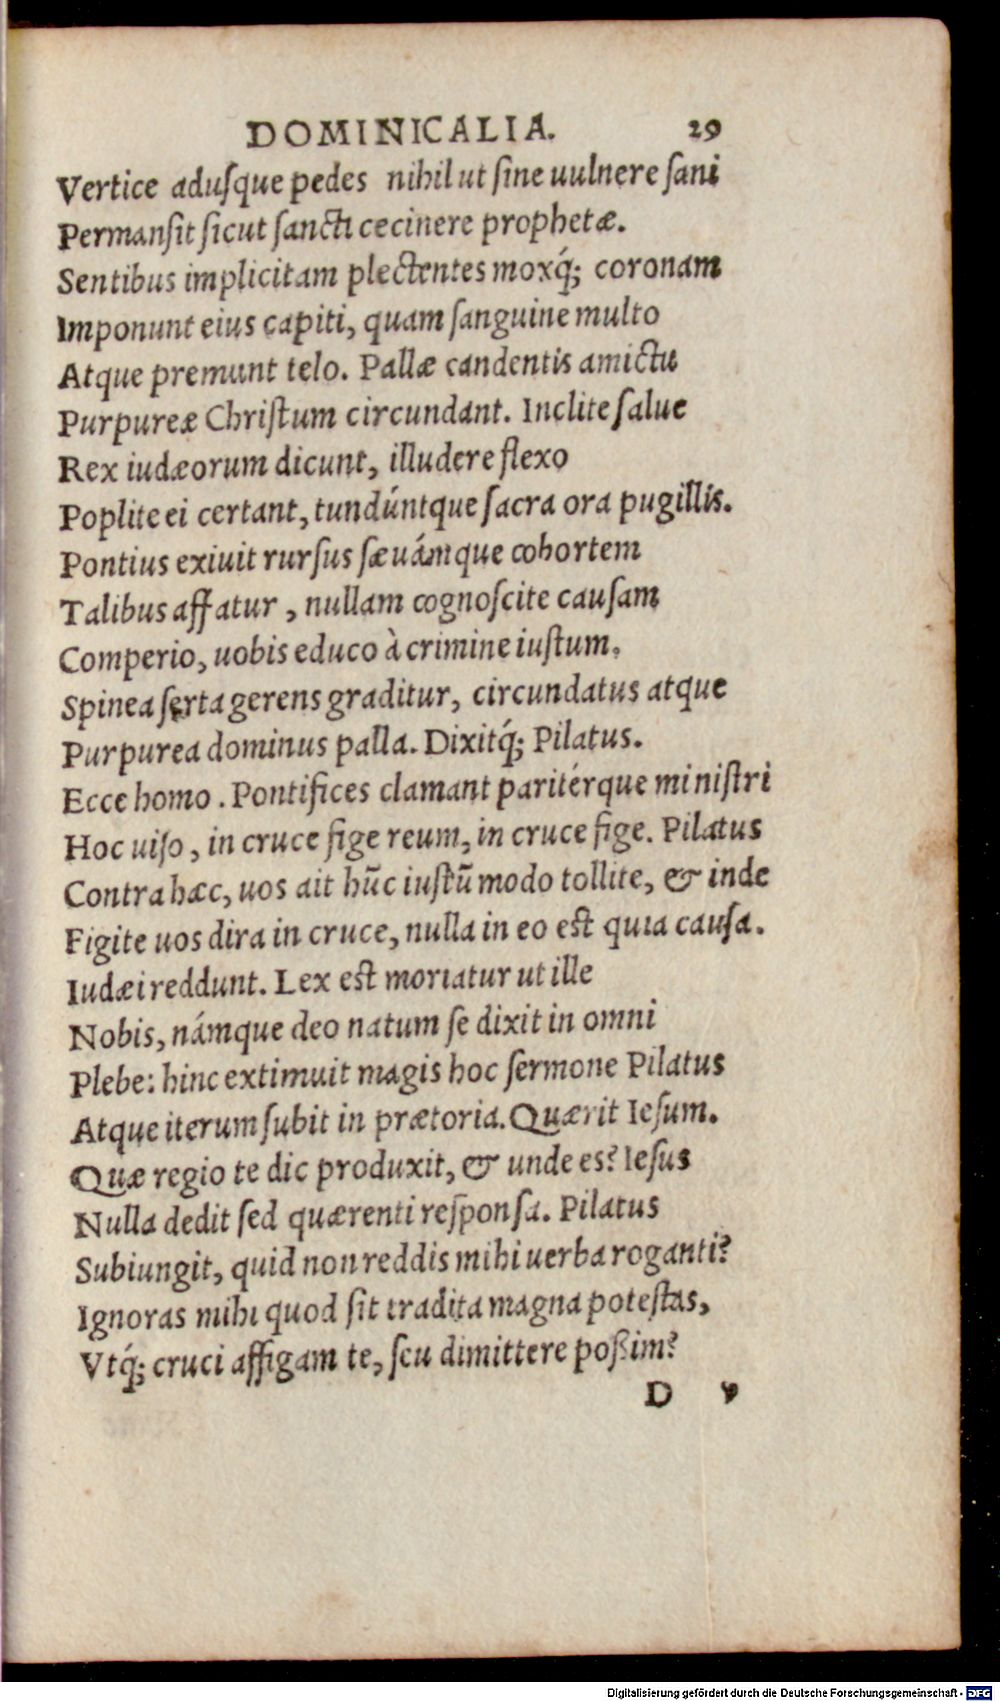 DOMINICALIA. 29
Vertice aduſque pedes nihil ut ſine uulnere ſani
Permanſit ſicut ſancti cecinere prophetæ.
Sentibus implicitam plectentes moxq́; coronam
Imponunt eius capiti, quam ſanguine multo
Atque premunt telo. Pallæ candentis amictu
Purpureæ Chriſtum circundant. Inclite ſalue
Rex iudæorum dicunt, illudere flexo
Poplite ei certant, tundúntque ſacra ora pugillis.
Pontius exiuit rurſus ſæuámque cohortem
Talibus affatur, nullam cognoſcite cauſam
Comperio, uobis educo à crimine iuſtum.
Spinea ſerta gerens graditur, circundatus atque
Purpurea dominus palla. Dixitq́; Pilatus.
Ecce homo. Pontifices clamant paritérque miniſtri
Hoc uiſo, in cruce fige reum, in cruce fige. Pilatus
Contra hæc, uos ait hūc iuſtū modo tollite, & inde
Figite uos dira in cruce, nulla in eo eſt quia cauſa.
Iudæi reddunt. Lex eſt moriatur ut ille
Nobis, námque deo natum ſe dixit in omni
Plebe: hinc extimuit magis hoc ſermone Pilatus
Atque iterum ſubit in prætoria. Quærit Ieſum.
Quæ regio te dic produxit, & unde es? Ieſus
Nulla dedit ſed quærenti reſponſa. Pilatus
Subiungit, quid non reddis mihi uerba roganti?
Ignoras mihi quod ſit tradita magna poteſtas,
Vtq́; cruci affigam te, ſeu dimittere poßim?
D v
Digitalisierung gefördert durch die Deutsche Forschungsgemeinschaft - DFG